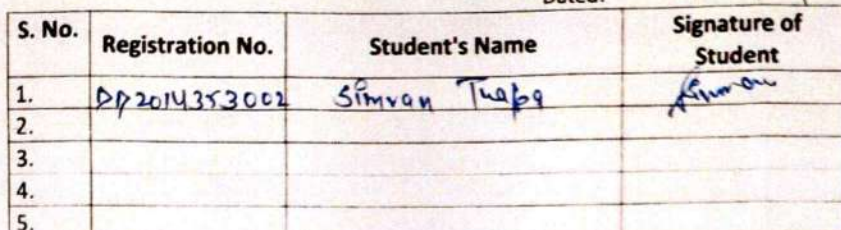 Dated:
S. No. Registration No. Student's Name Signature of Student
1. DD2014353002 Simran Thapa Simran
2.
3.
4.
5.